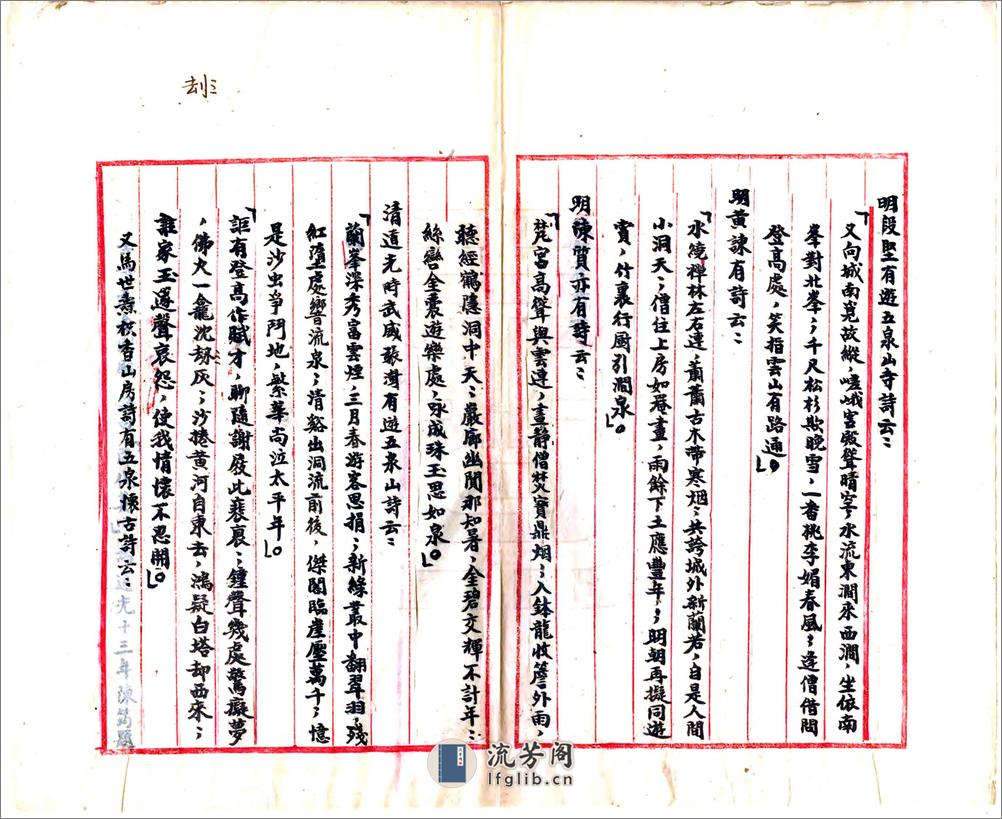 明段堅有遊五泉山寺詩云：
「又向城南覓故縱，嵯峨宫殿聳晴空；水流東澗來西澗，坐依南
峯對北峯；千尺松杉欺晚雪，一番桃李媚春風；逢僧借問
登高處，笑指雲山有路通」。
明黃諫有詩云：
「水繞禪林左右連，蕭蕭古木帶寒烟；共誇城外新蘭若，自是人間
小洞天；僧住上房如菴畫，雨餘下土應豐年；明朝再擬同遊
賞，竹裏行厨引澗泉」。
明陳質亦有詩云：
「梵宫高聳與雲連，晝静僧焚寶鼎烟；入鉢龍收簷外雨，
聽經鶴隱洞中天；巖廊幽閴那知暑，金碧交輝不計年；
絲轡金囊遊樂處，咏成珠玉思如泉」。
清道光時武威張澍有遊五泉山詩云：
「蘭峯深秀富雲煙，三月春游客思捐；新綠叢中翻翠羽，殘
紅墮處響流泉；清谿出洞流前後，傑閣臨崖壓萬千；憶
是沙虫爭鬥地，繁華尚泣太平年」。
「詎有登高作賦才，聊隨謝屐此裴裒；鍾聲幾處驚癡夢
，佛火一龕沈劫灰；沙捲黄河自東去，鴻疑白塔却西來；
誰家玉邃聲哀怨，使我情懷不忍開」。
又馬世焘枳香山房詩有五泉懷古詩云：
光十三年陳
流芳阁
lfglib.cn